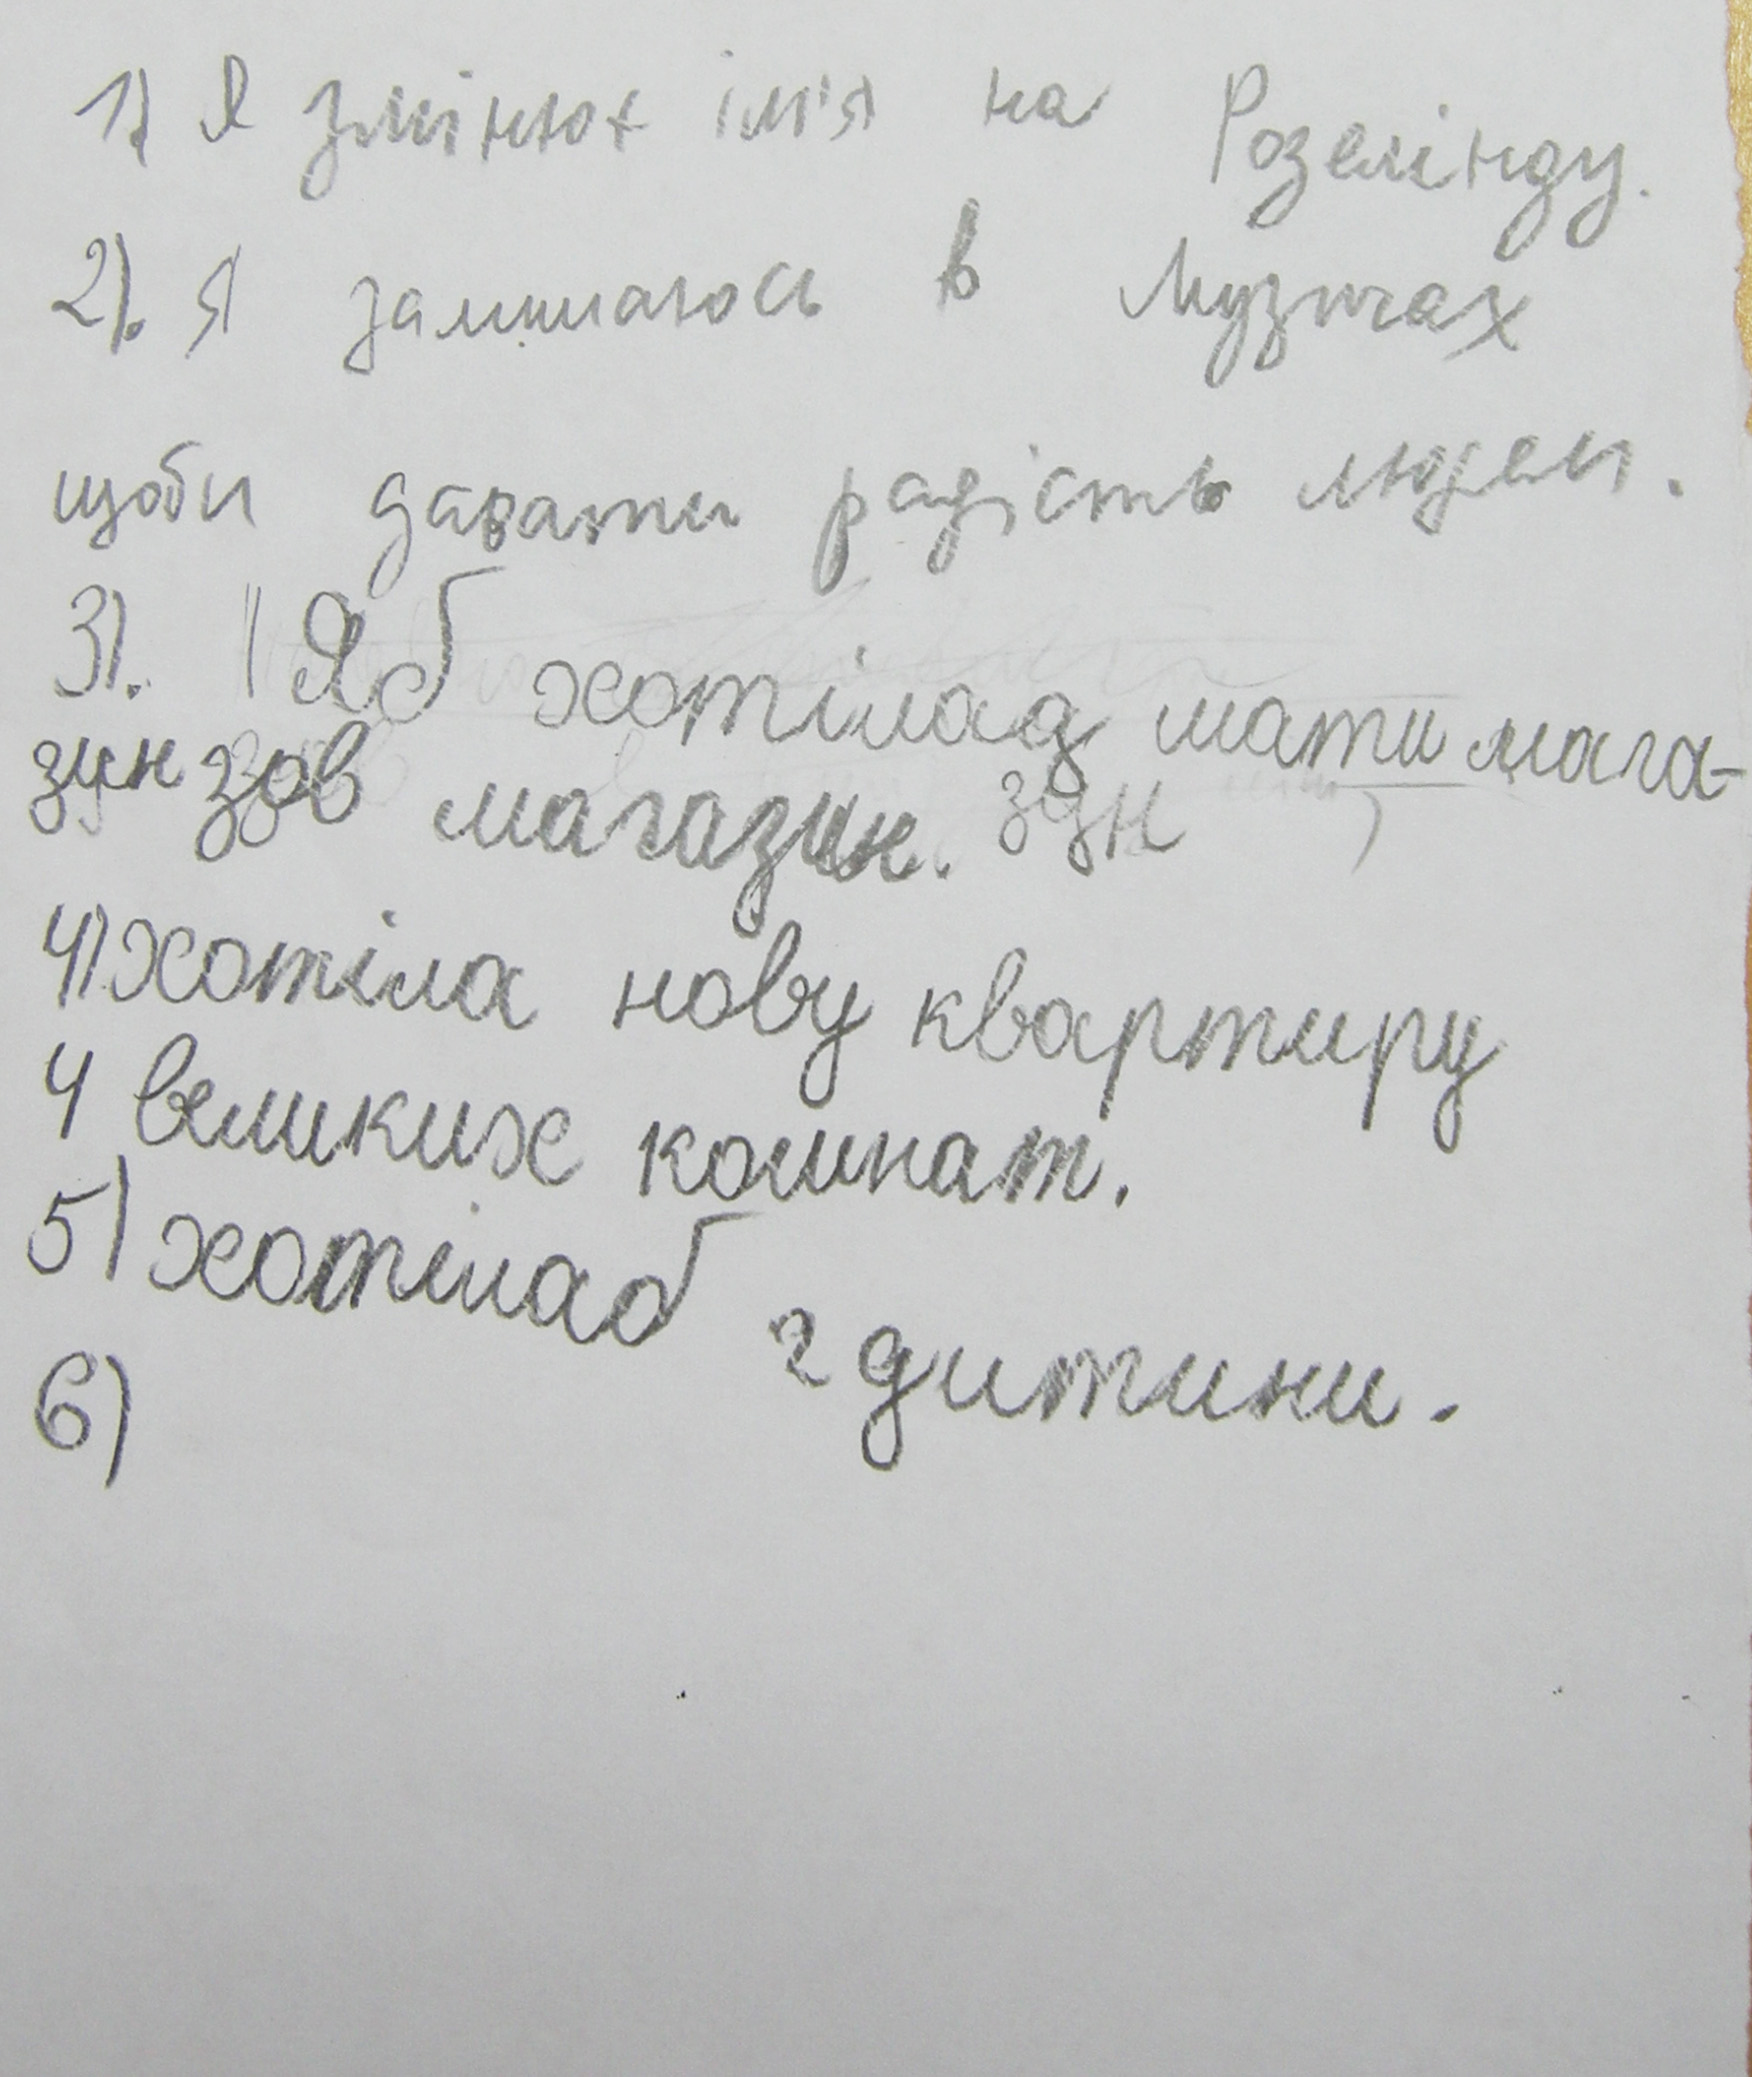 1) Я змінюю ім'я на Розелінду.
2). Я залишаюсь в Музичах
щоби давати радість людям.
3). Яб хотілад мати мага-
зин зов магазин. ззн
4) хотіла нову квартиру
4 великих комнат.
5) хотілаб 2 дитини.
6)